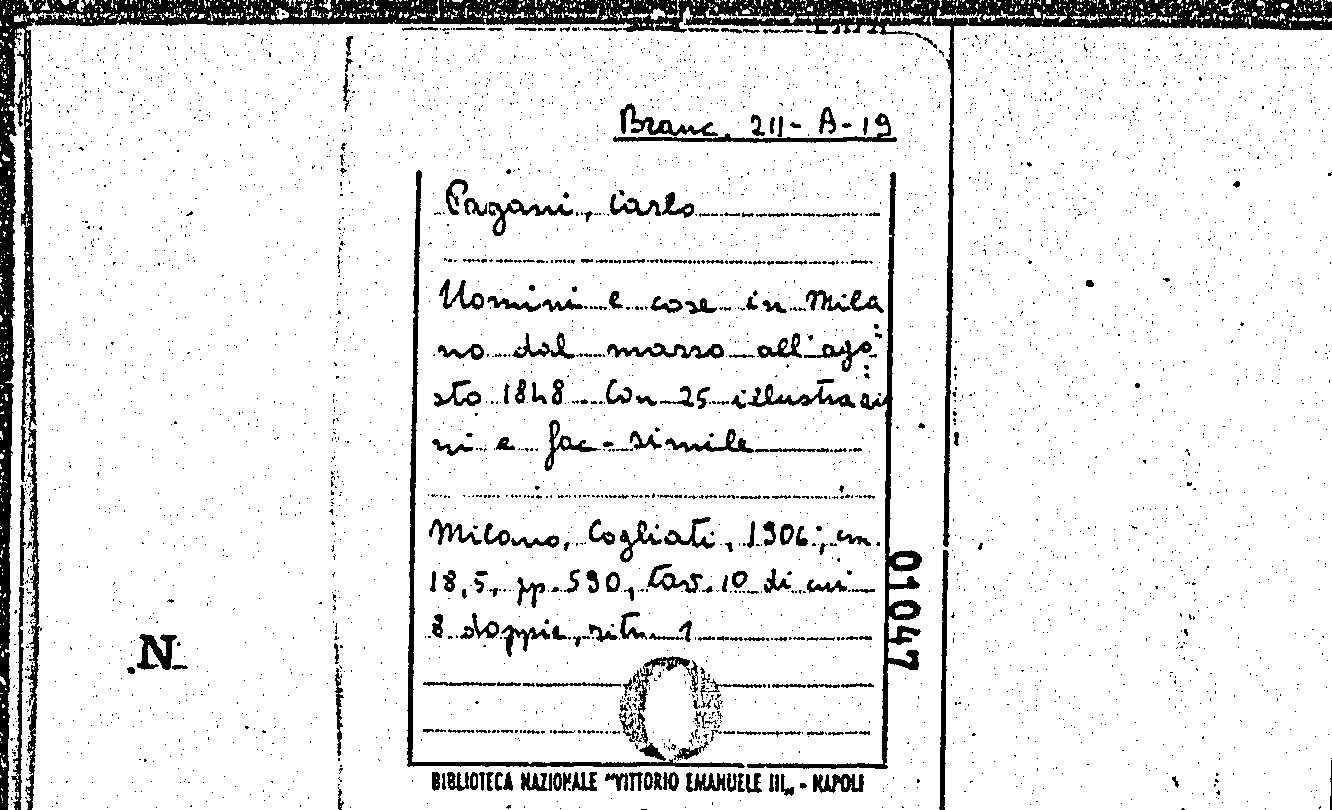 Branc. 211-A-19
Pagani, Carlo
Uomini e cose in Mila
no dal marzo all'ago
sto 1848. Con 25 illustrazio
ni e fac-simile
Milano, Cogliati, 1906; cm.
18,5, pp. 590, tav. 10 di cui
8 doppie, ritr. 1
01047
N
BIBLIOTECA NAZIONALE "VITTORIO EMANUELE III„ - NAPOLI